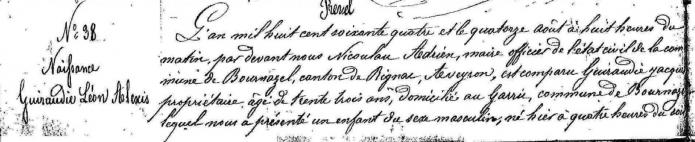 N° 38
Naissance
Guiraudie Léon Alexis
L'an mil huit cent soixante quatre et le quatorze août à huit heures du
matin, par devant nous Nicoulau Adrien, maire officier de l'état civil de la com
mune de Bournazel, canton de Rignac, Aveyron, est comparu Guiraudie Jacques
propriétaire, âgé de trente trois ans, domicilié au Garric, commune de Bournazel
lequel nous a présenté un enfant du sexe masculin, né hier à quatre heures du soir